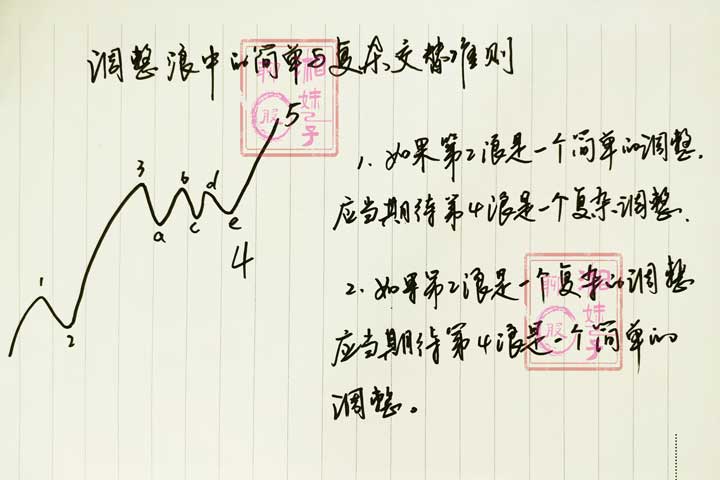 调整浪中的简单与复杂交替准则
5
3
b
d
a
c
e
4
1
2
1、如果第2浪是一个简单的调整,
应当期待第4浪是一个复杂调整.
2、如果第2浪是一个复杂的调整
应当期待第4浪是一个简单的
调整。
湘妹子
聊股
湘妹子
聊股